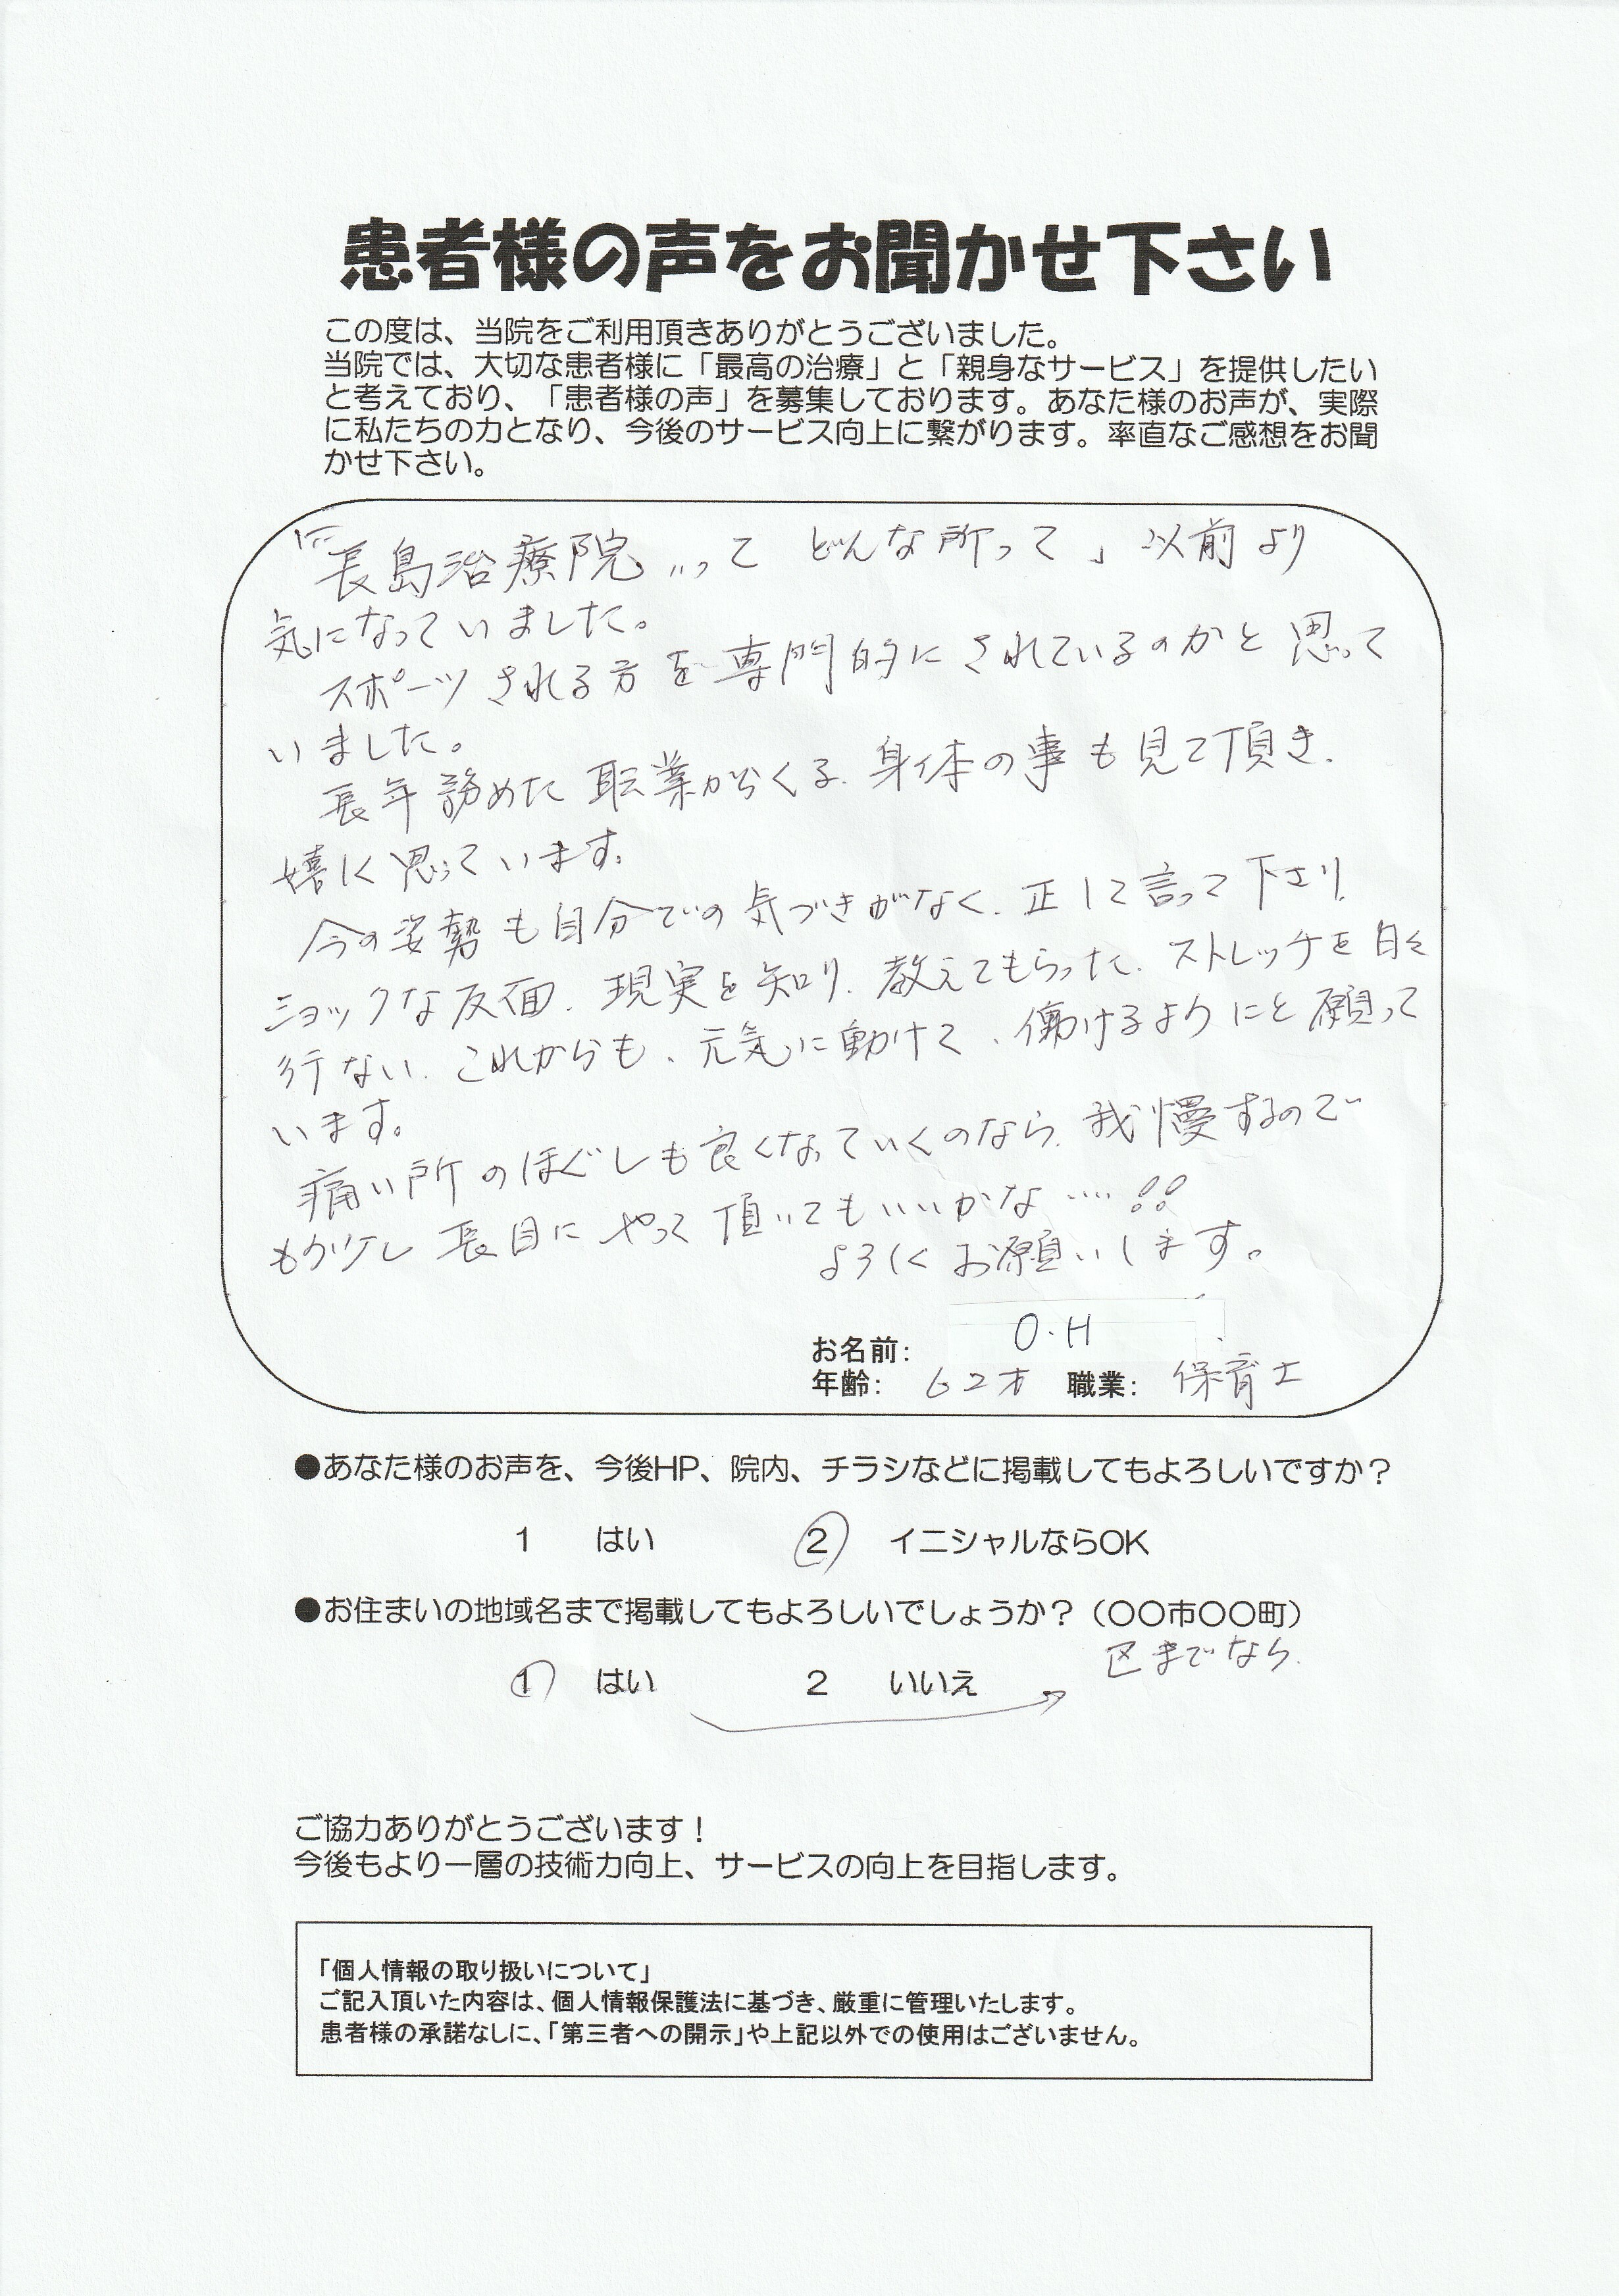 患者様の声をお聞かせ下さい
この度は、当院をご利用頂きありがとうございました。
当院では、大切な患者様に「最高の治療」と「親身なサービス」を提供したい
と考えており、「患者様の声」を募集しております。あなた様のお声が、実際
に私たちの力となり、今後のサービス向上に繋がります。率直なご感想をお聞
かせ下さい。
「"長島治療院"って どんな所って」以前より
気になっていました。
スポーツされる方を専門的にされているのかと思って
いました。
長年務めた職業からくる、身体の事も見て頂き、
嬉しく思っています。
今の姿勢も自分での気づきがなく、正して言って下さり、
ショックな反面、現実を知り、教えてもらった、ストレッチを日々
行ない、これからも、元気に動けて、働けるようにと願って
います。
痛い所のほぐしも良くなっていくのなら、我慢するので
もう少し長目にやって頂いてもいいかな…‥!!
よろしくお願いします。
お名前： O・H
年齢： 62才 職業： 保育士
●あなた様のお声を、今後HP、院内、チラシなどに掲載してもよろしいですか？
1 はい 2 イニシャルならOK
●お住まいの地域名まで掲載してもよろしいでしょうか？（〇〇市〇〇町）
区までなら、
1 はい 2 いいえ
ご協力ありがとうございます！
今後もより一層の技術力向上、サービスの向上を目指します。
「個人情報の取り扱いについて」
ご記入頂いた内容は、個人情報保護法に基づき、厳重に管理いたします。
患者様の承諾なしに、「第三者への開示」や上記以外での使用はございません。